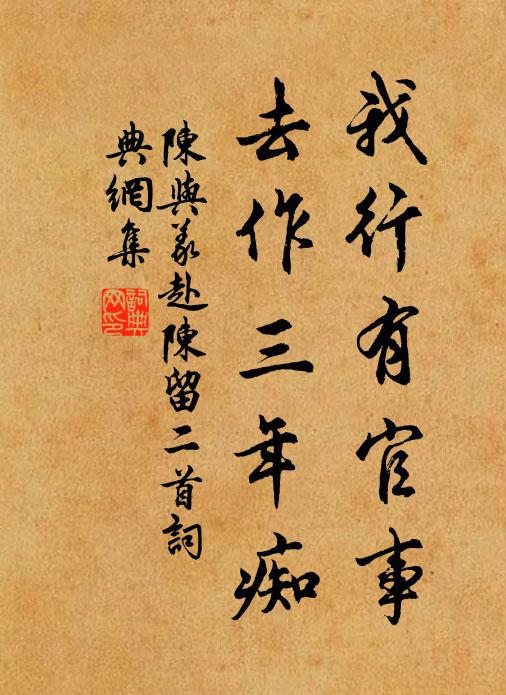 我行有官事
去作三年痴
陳與義赴陳留二首詞
典網集
詞典網印